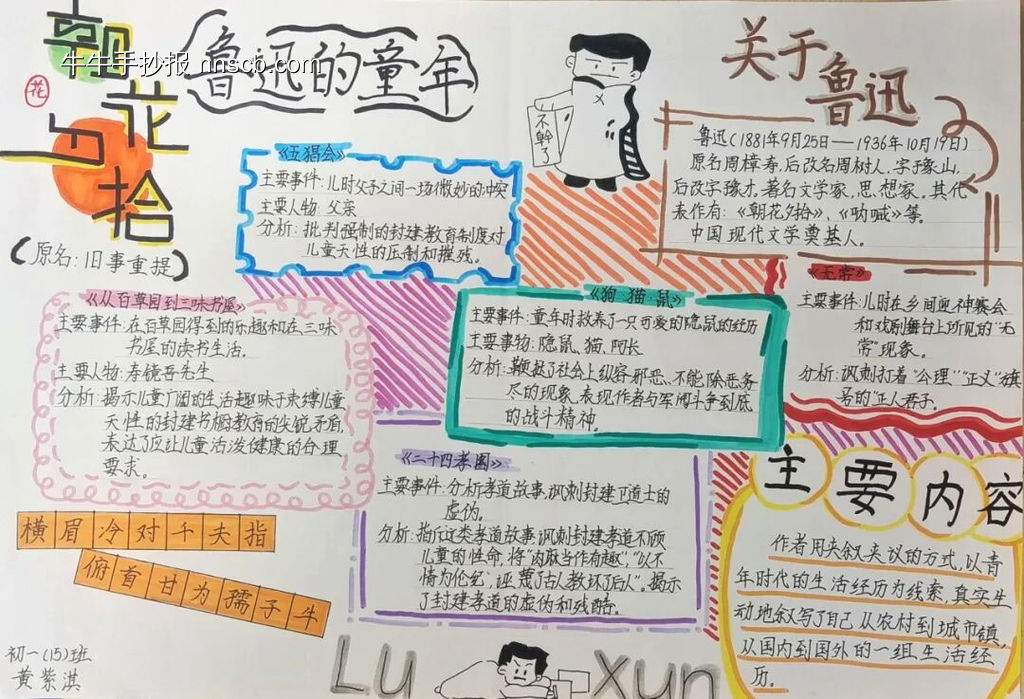 朝花夕拾
牛牛手抄报 nnscb.com
花
(原名:旧事重提)
鲁迅的童年
不幹了
关于鲁迅
鲁迅(1881年9月25日——1936年10月19日)
原名周樟寿,后改名周树人,字予象山,
后改字豫才,著名文学家,思想家。其代
表作有:《朝花夕拾》、《呐喊》等。
中国现代文学奠基人。
《五猖会》
主要事件:儿时父子之间一场微妙的冲突
主要人物:父亲
分析:批判强制的封建教育制度对
儿童天性的压制和摧残。
《从百草园到三味书屋》
主要事件:在百草园得到的乐趣和在三味
书屋的读书生活。
主要人物:寿镜吾先生
分析:揭示儿童广阔的生活趣味于束缚儿童
天性的封建书塾教育的尖锐矛盾,
表达了应让儿童活泼健康的合理
要求。
《狗·猫·鼠》
主要事件:童年时救养了一只可爱的隐鼠的经历
主要事物:隐鼠、猫、阿长
分析:鞭挞了社会上纵容邪恶、不能除恶务
尽的现象,表现作者与军阀斗争到底
的战斗精神。
《无常》
主要事件:儿时在乡间迎神赛会
和戏剧舞台上所见的"无
常"现象。
分析:讽刺打着"公理""正义"旗
号的"正人君子。
《二十四孝图》
主要事件:分析孝道故事,讽刺封建卫道士的
虚伪。
分析:指斥这类孝道故事,讽刺封建孝道不顾
儿童的性命,将"肉麻当作有趣","以不
情为伦纪",诬蔑了古人教坏了后人"。揭示
了封建孝道的虚伪和残酷。
横眉冷对千夫指
俯首甘为孺子牛
主要内容
作者用夹叙夹议的方式,以青
年时代的生活经历为线索,真实生
动地叙写了自己从农村到城市镇,
从国内到国外的一组生活经
历。
初一(15)班
黄紫淇
Lu Xun